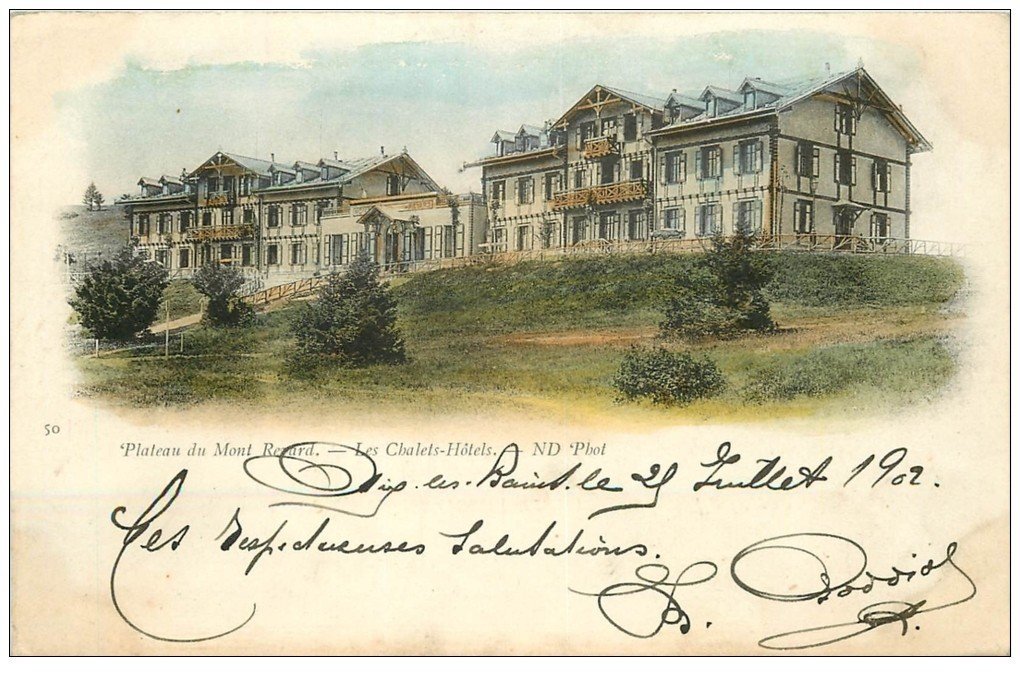 50
Plateau du Mont Revard. — Les Chalets-Hôtels. — ND Phot
Aix-les-Bains. le 25 Juillet 1902.
Ses respectueuses Salutations.